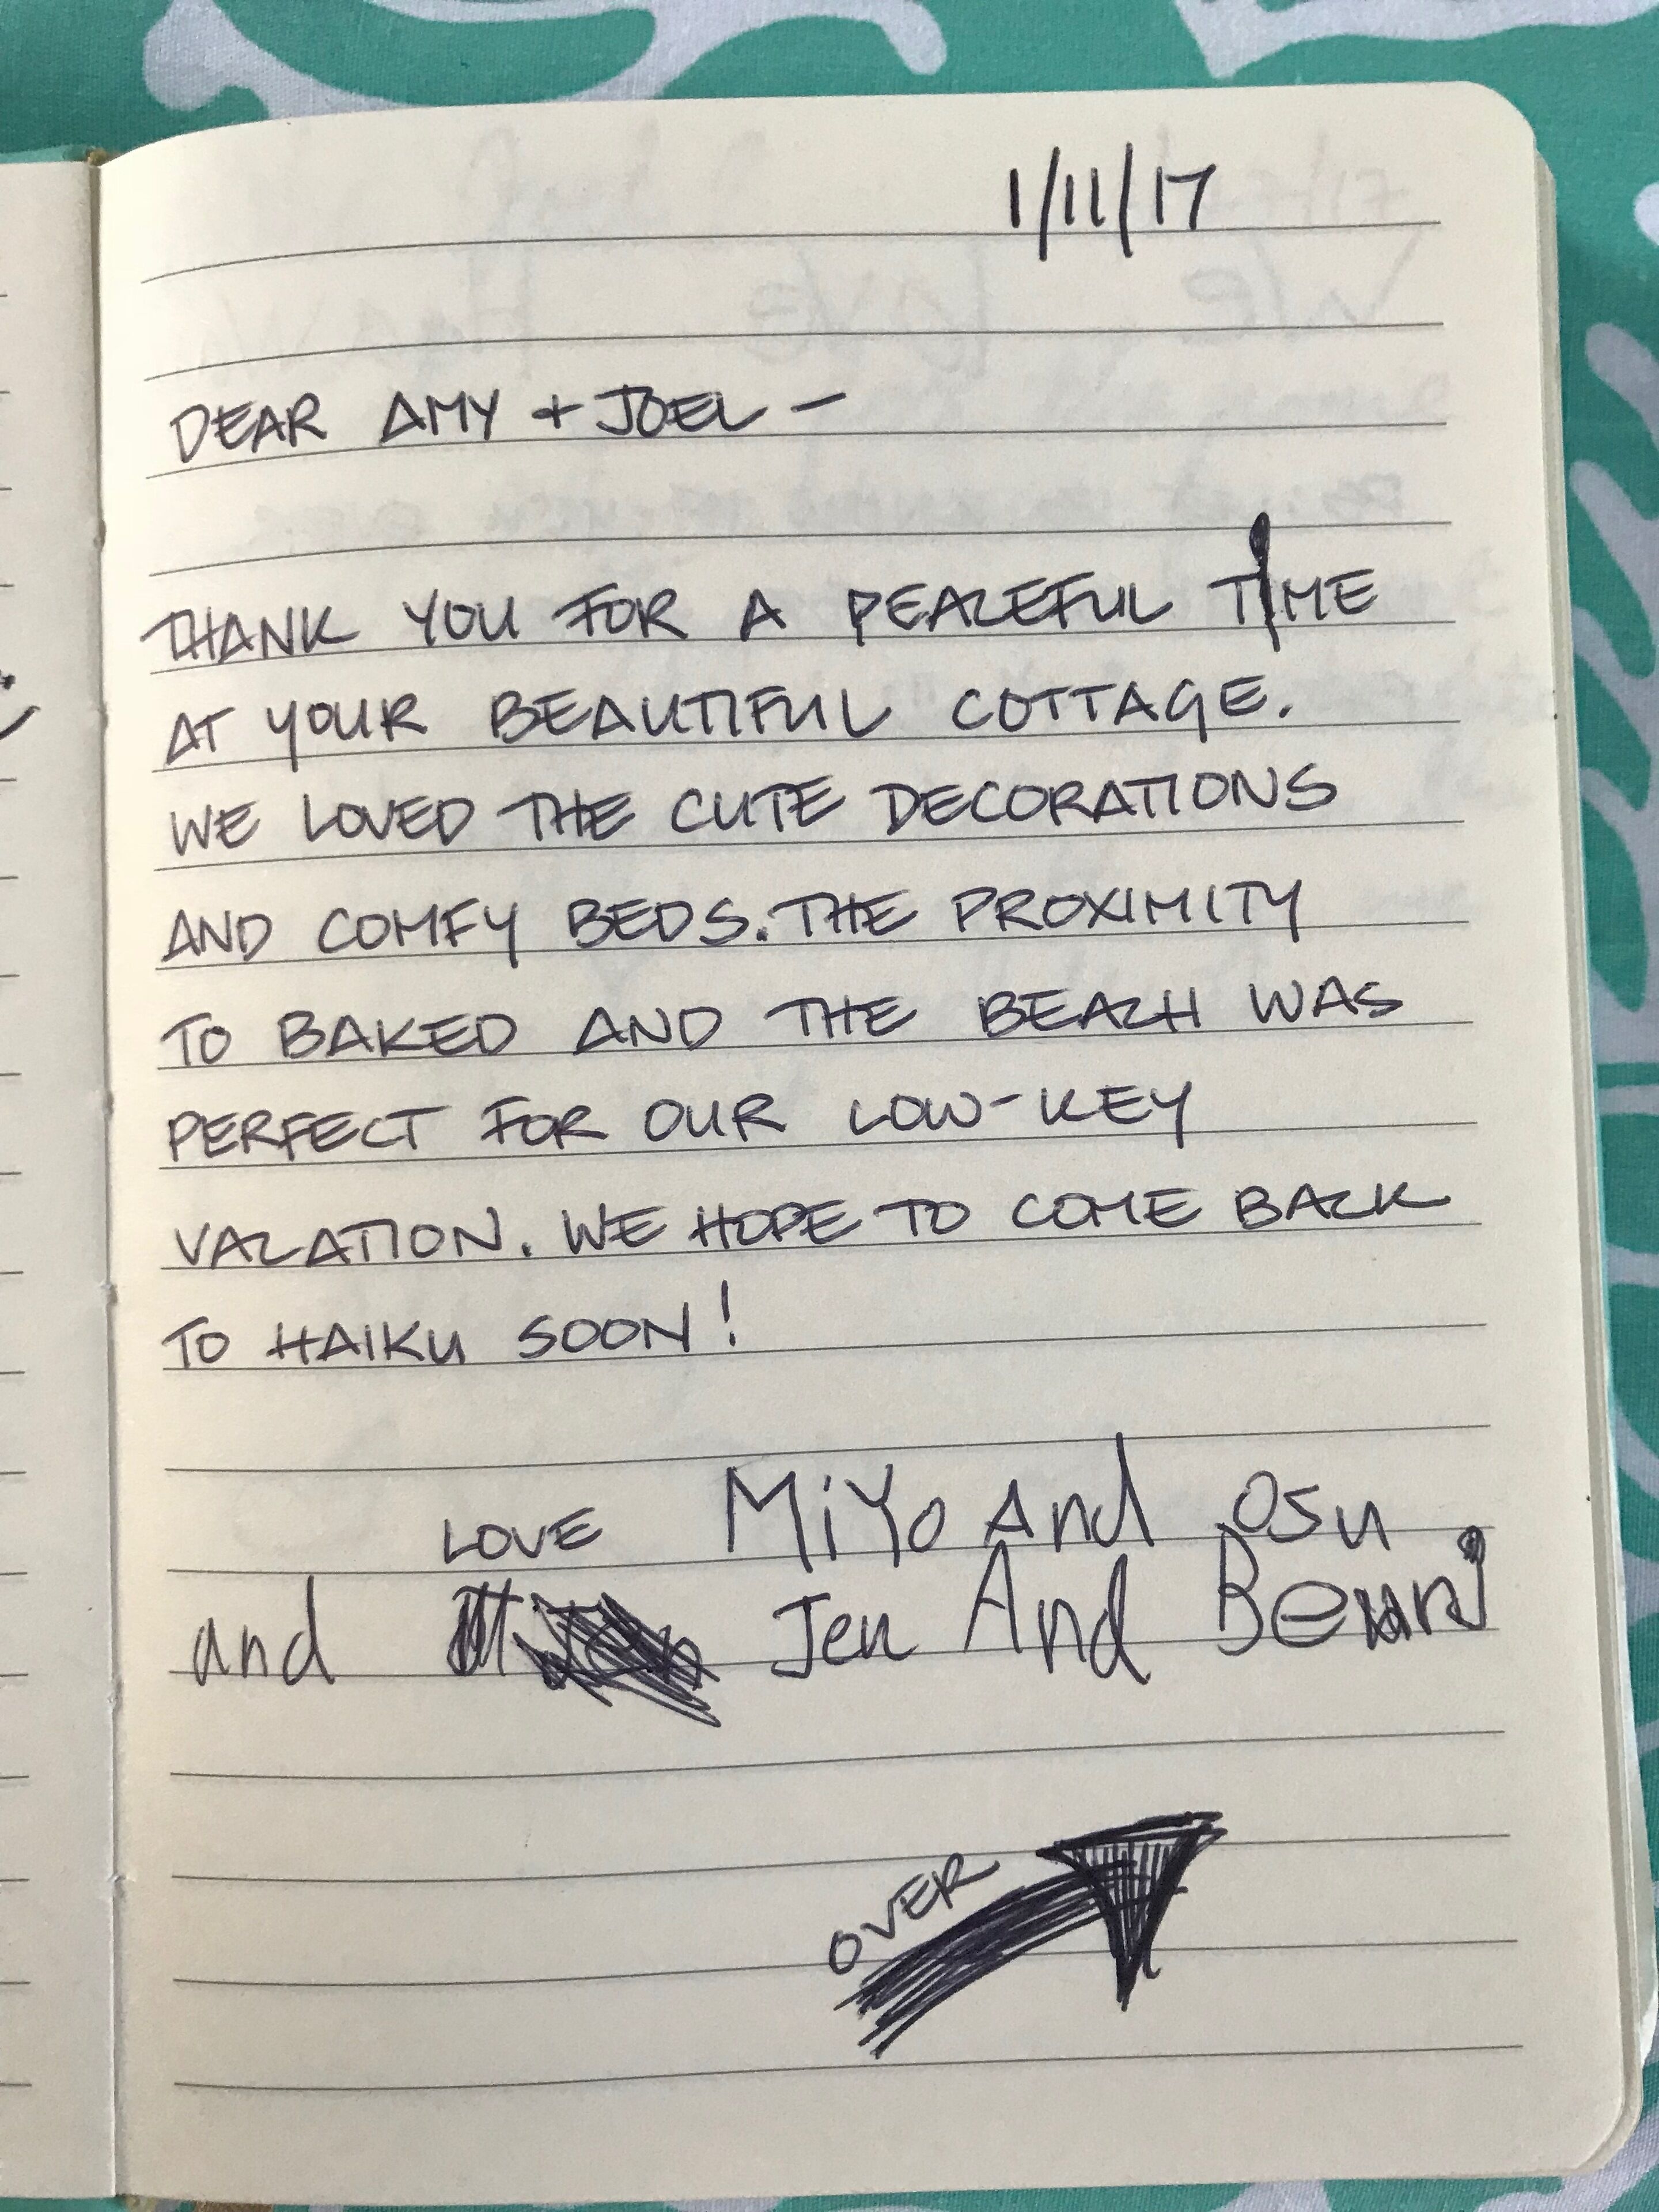 1/11/17
DEAR AMY + JOEL -
THANK YOU FOR A PEACEFUL TIME
AT YOUR BEAUTIFUL COTTAGE.
WE LOVED THE CUTE DECORATIONS
AND COMFY BEDS. THE PROXIMITY
TO BAKED AND THE BEACH WAS
PERFECT FOR OUR LOW-KEY
VACATION. WE HOPE TO COME BACK
TO HAIKU SOON!
LOVE MiYo And Osu
and Jen And
OVER